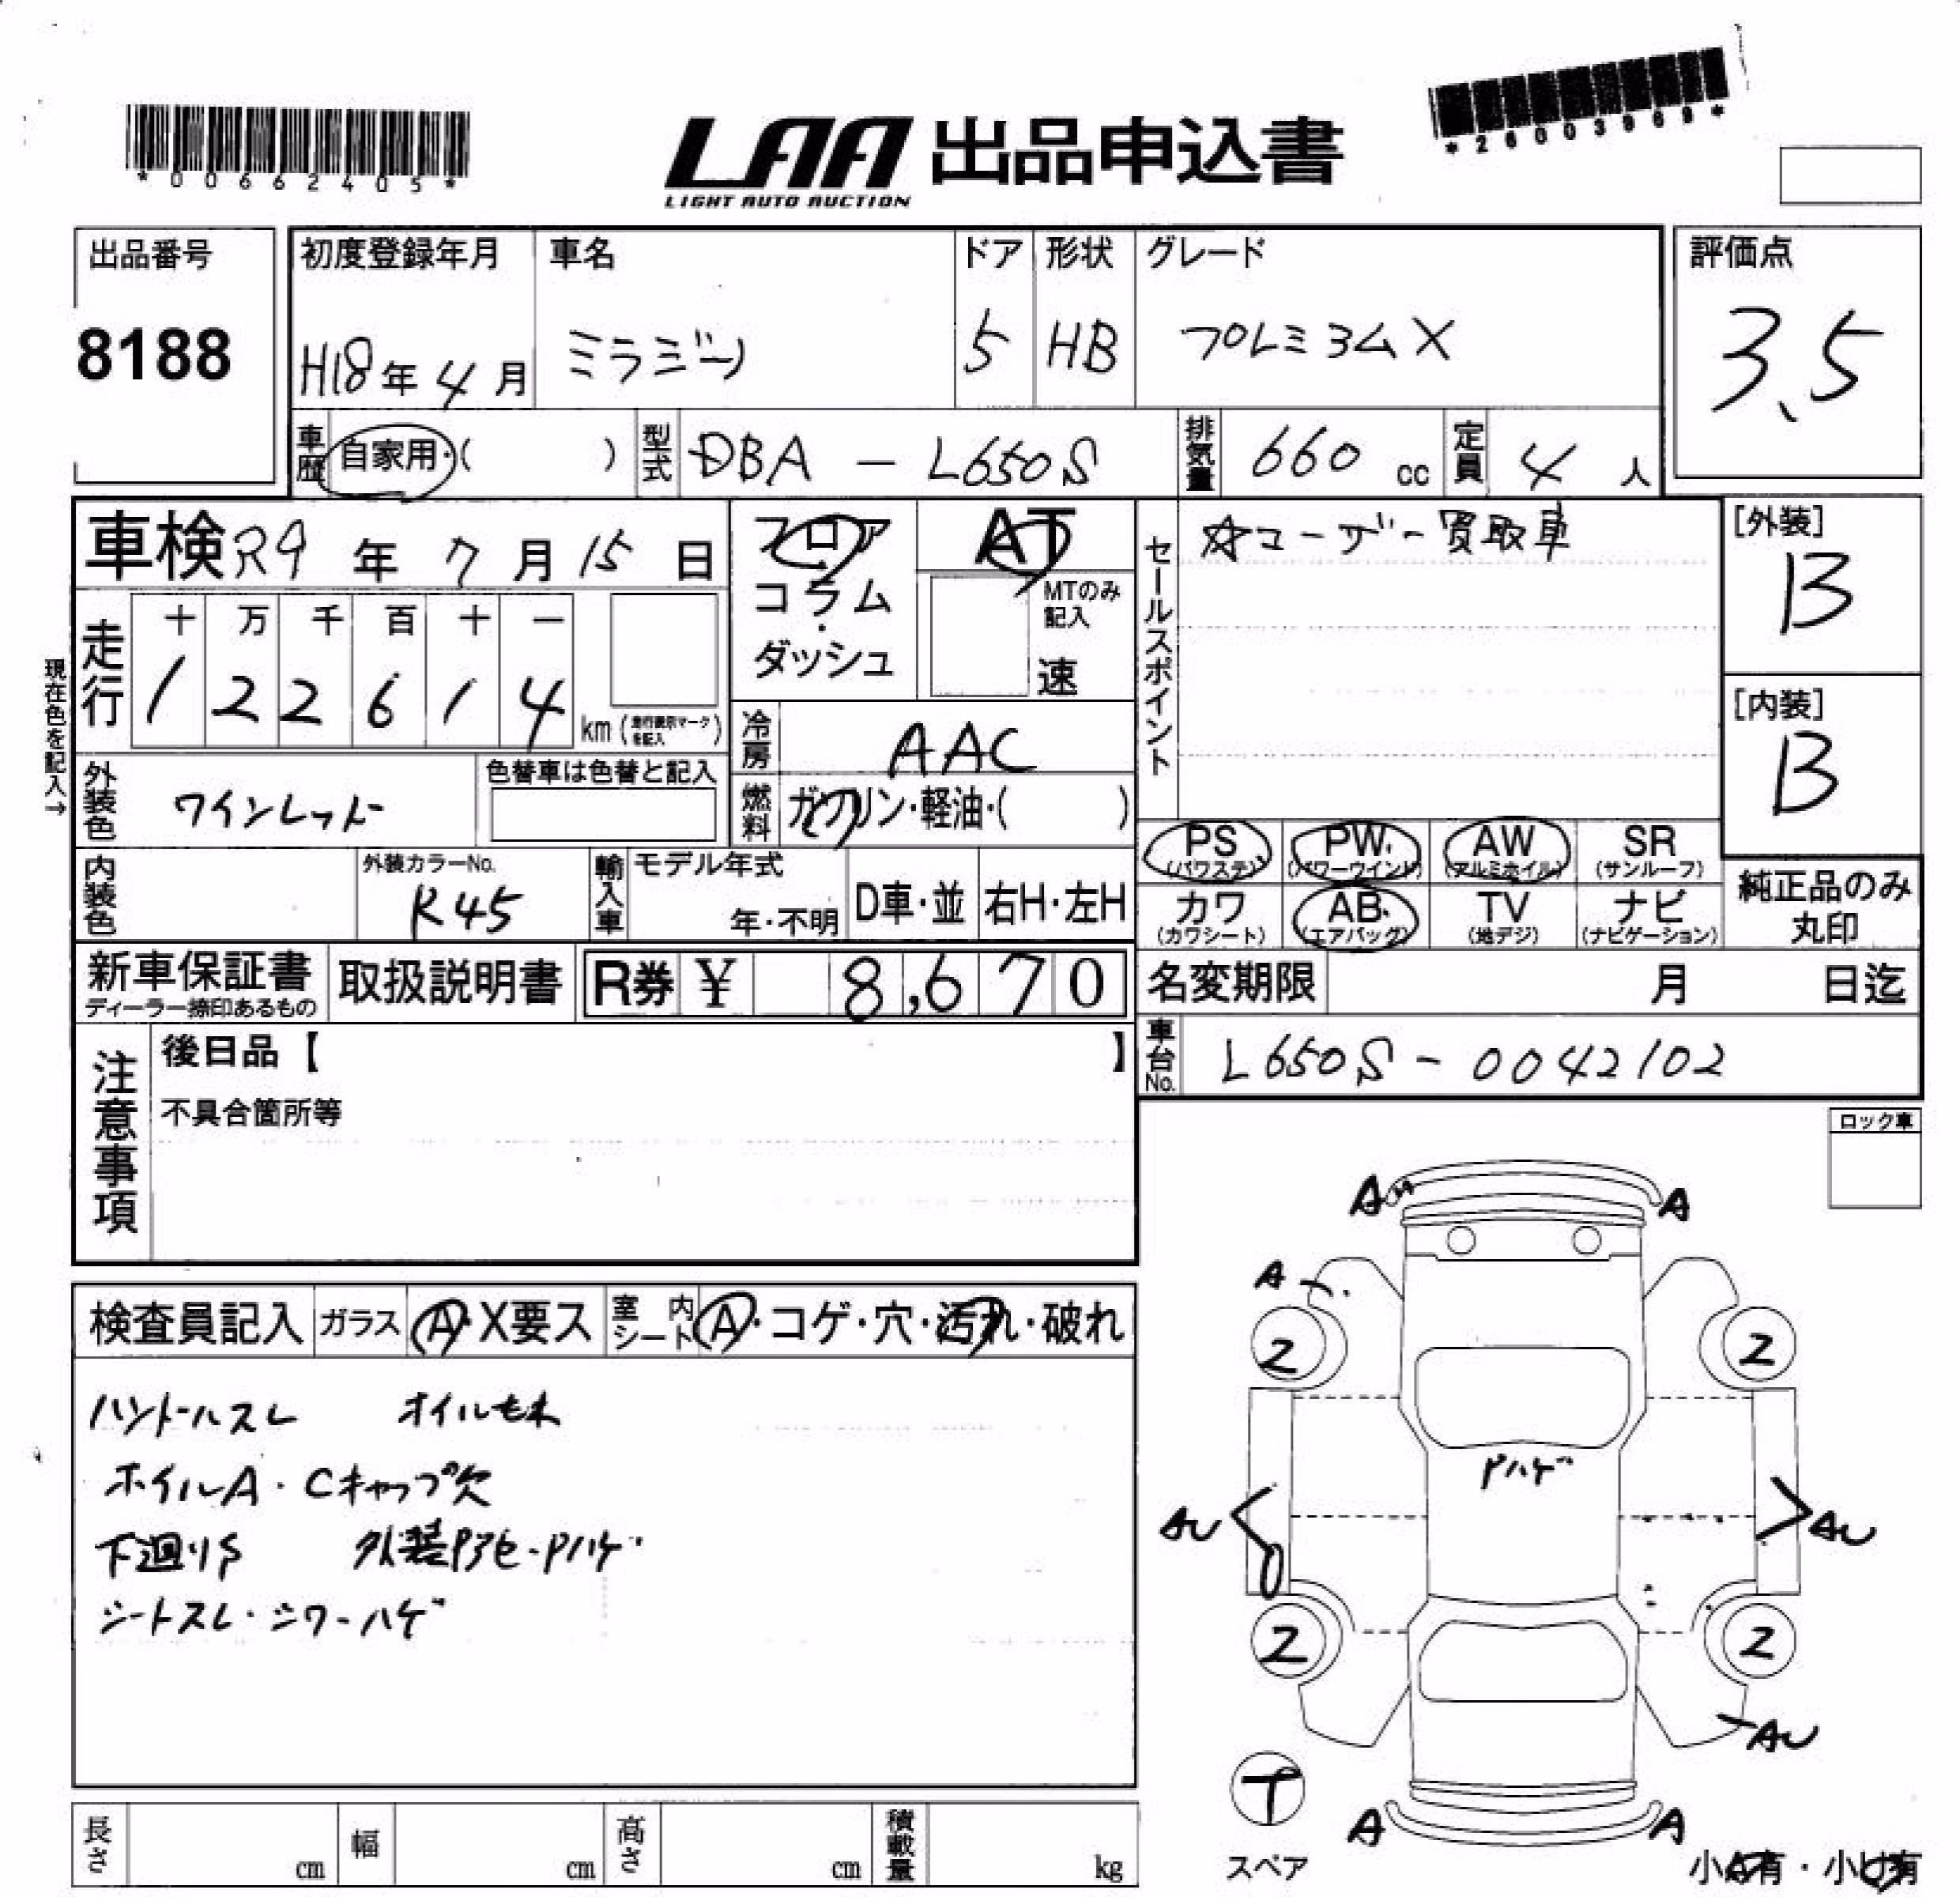 *00662405*
LAA 出品申込書
LIGHT AUTO AUCTION
*26003969*
出品番号
8188
初度登録年月
H18年4月
車名
ミラジーノ
ドア
5
形状
HB
グレード
プレミアムX
評価点
3.5
車歴
自家用・( )
型式
DBA - L650S
排気量
660 cc
定員
4 人
車検 R9 年 7 月 15 日
現在色を記入→
走行
十 万 千 百 十 一
1 2 2 6 1 4 km (走行表示マークを記入)
フロア
コラム
・
ダッシュ
AT
MTのみ記入
速
冷房
AAC
燃料
ガソリン・軽油・( )
セールスポイント
☆ユーザー買取車
[外装]
B
[内装]
B
外装色
ワインレッド
色替車は色替と記入
内装色
外装カラーNo.
R45
輸入車
モデル年式
年・不明
D車・並
右H・左H
PS (パワステ)
PW (パワーウインド)
AW (アルミホイル)
SR (サンルーフ)
カワ (カワシート)
AB (エアバッグ)
TV (地デジ)
ナビ (ナビゲーション)
純正品のみ
丸印
新車保証書
ディーラー捺印あるもの
取扱説明書
R券 ¥ 8,670
名変期限 月 日迄
車台No.
L650S - 0042102
注意事項
後日品【 】
不具合箇所等
ロック車
検査員記入
ガラス
A・X要ス
室内シート
A・コゲ・穴・汚れ・破れ
ハンドルスレ オイルモレ
ホイルA・Cキャップ欠
下廻りS 外装Pアセ・Pハゲ
シートスレ・シワ・ハゲ
A A
A
2 2
Pハゲ
AU AU
2 2
AU
T
スペア
A A
小A有・小U有
長さ cm
幅 cm
高さ cm
積載量 kg